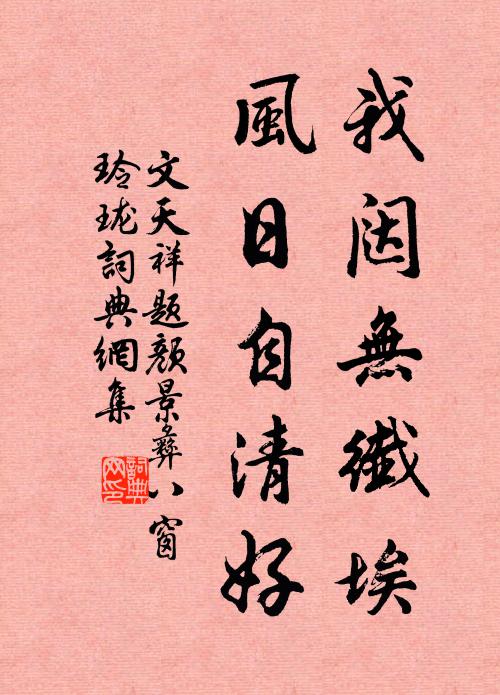 我闼無纖埃
風日自清好
文天祥題顏景彝八窗
玲珑詞典網集
詞典网印